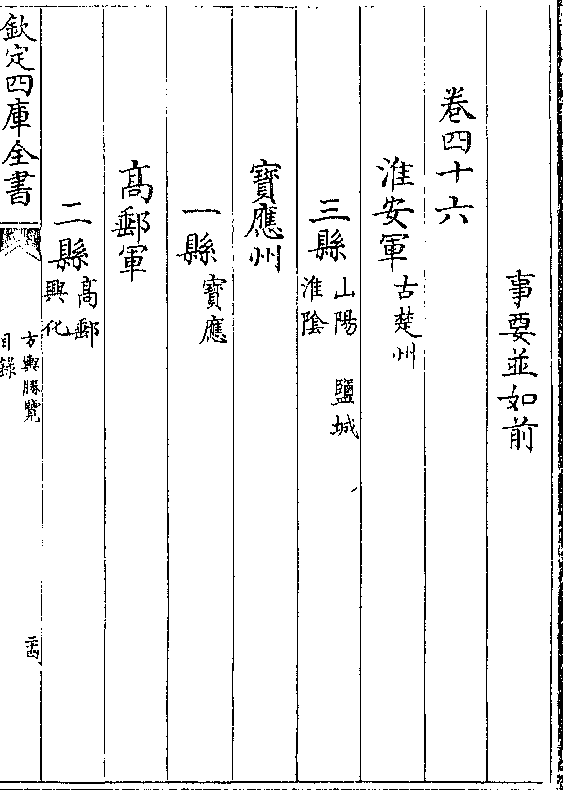 事要並如前
卷四十六
淮安軍古楚州
三縣山陽　鹽城
淮陰
寶應州
一縣寶應
髙郵軍
二縣髙郵
興化
欽定四庫全書
方輿勝覽
目録